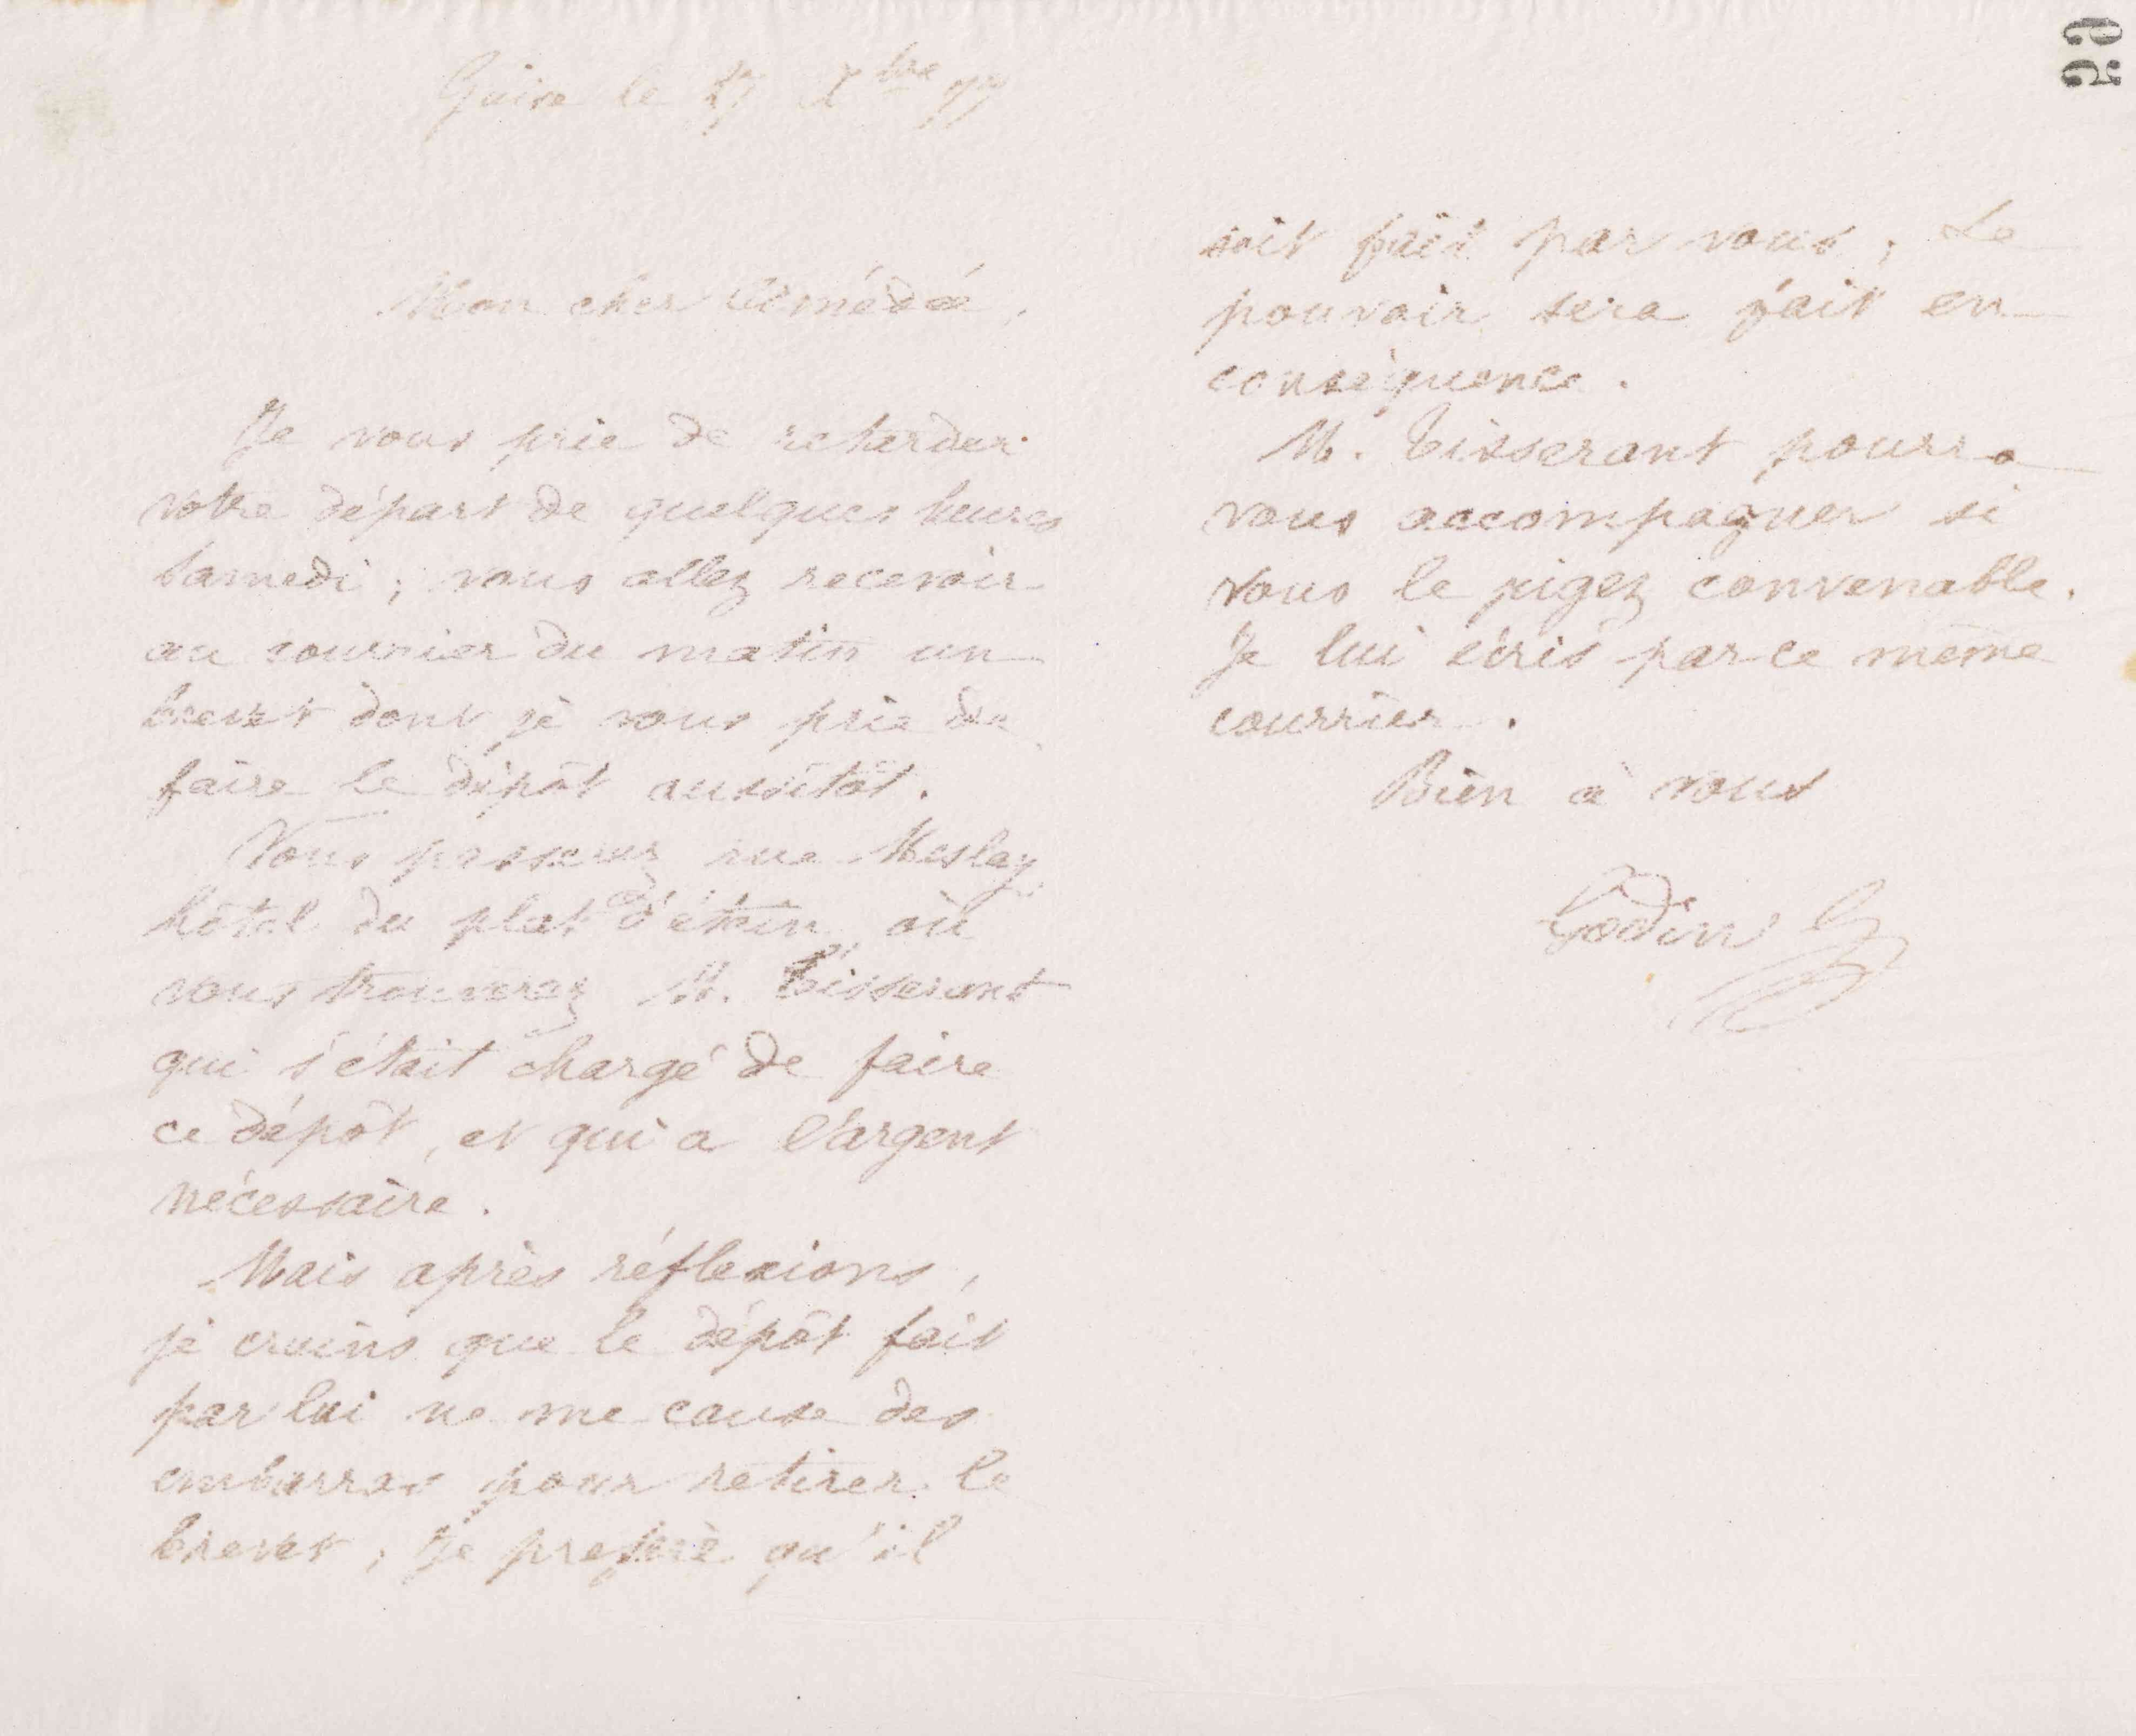 Guise le 27 Xbre 77
Mon cher Amédée,
Je vous prie de retarder
votre départ de quelques heures
samedi ; vous allez recevoir
au courrier du matin un
brevet dont je vous prie de
faire le dépôt aussitôt.
Vous passerez rue Meslay
hôtel du plat d'étain où
vous trouverez M. Tisserant
qui s'était chargé de faire
ce dépôt, et qui a l'argent
nécessaire.
Mais après réflexions,
je crains que le dépôt fait
par lui ne me cause des
embarras pour retirer le
brevet, je préfère qu'il
soit fait par vous ; Le
pouvoir sera fait en
conséquence.
M. Tisserant pourra
vous accompagner si
vous le jugez convenable.
Je lui écris par ce même
courrier.
Bien à vous
Godin
59